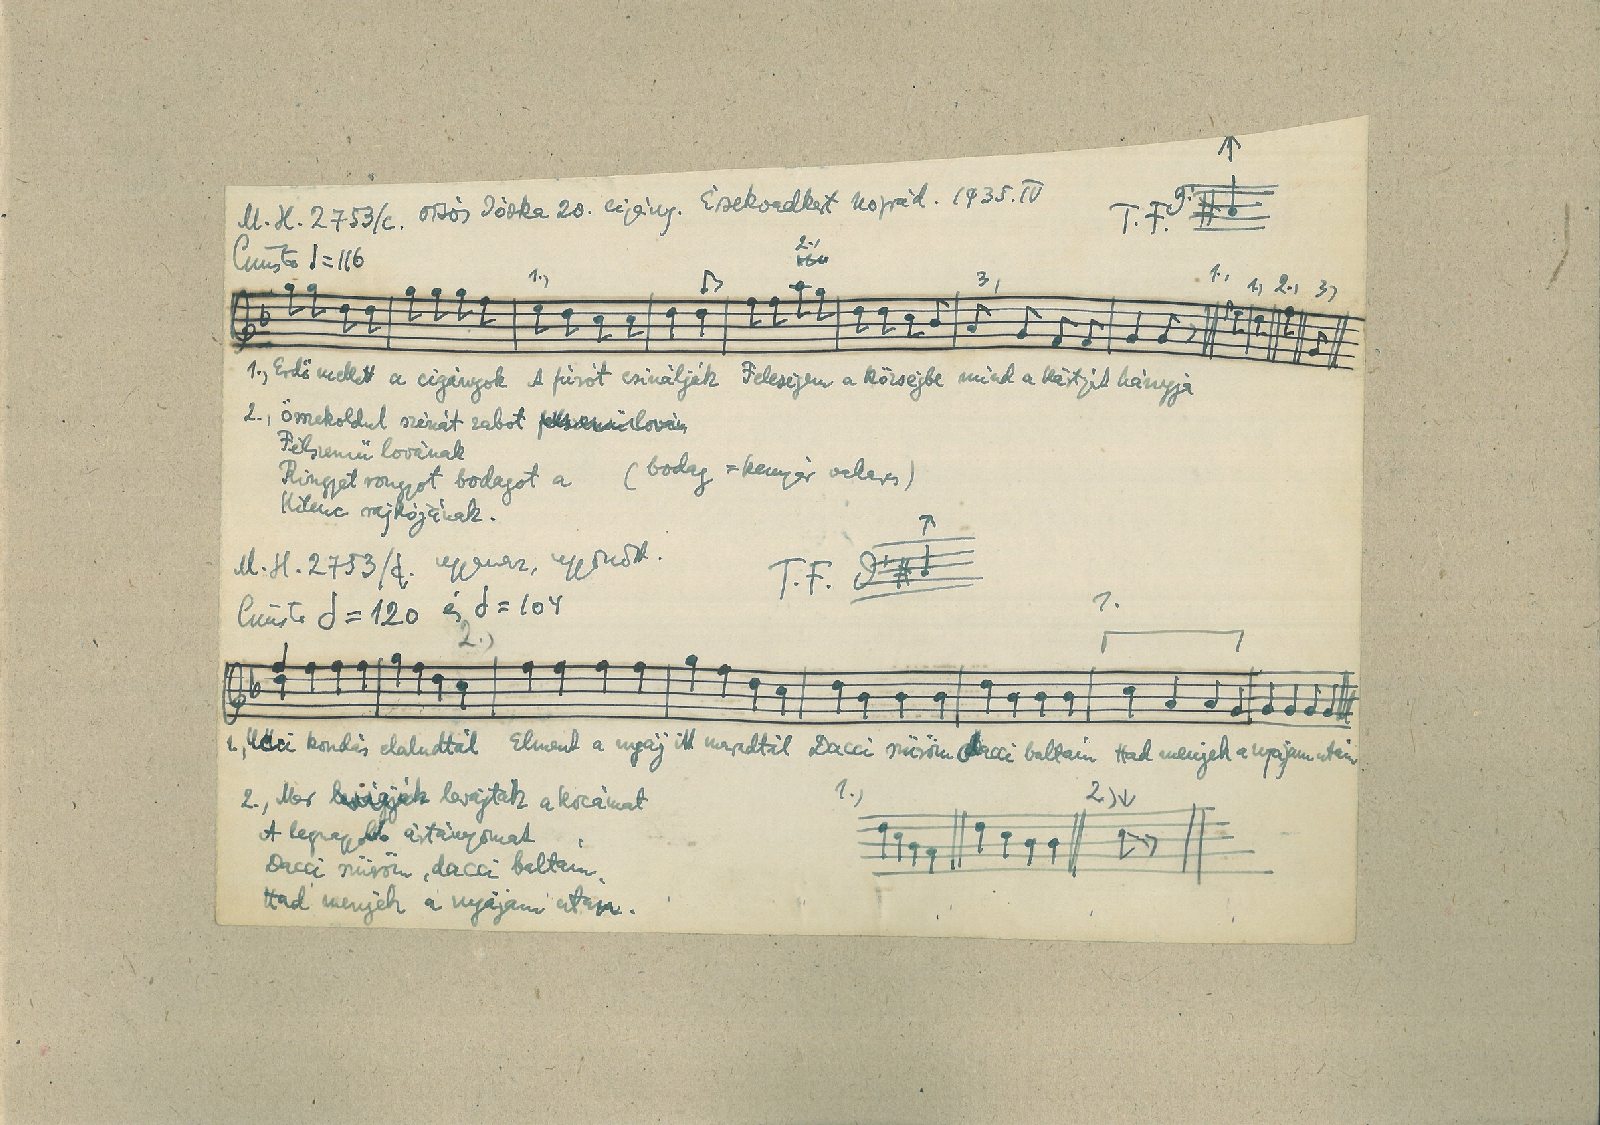 M.H. 2753/c. Orsós Jóska 20. cigány. Érsekvadkert Nográd. 1935.IV
T.F.
♩=116
2.,
1., 3, 1., 1., 2., 3,
1., Erdő mellett a cigányok A fúrót csinálják Feleségem a községbe mind a kártyát hányja
2., Összekoldul szénát zabot
Félszemű lovának
Ringyet rongyot bodagot a (bodag = kenyér vakaró)
Kilenc rajkójának.
M.H. 2753/d. ugyanaz, ugyanott.
T.F.
♩=120 és ♩=104
2.,
1.
1., kondás elaludtál Elment a nyáj itt maradtál Dacci szűröm dacci baltám Had menjek a nyájam után
2., Mer levágják levágták a kocámat
A legnagyobb ártányomat
Dacci szűröm, dacci baltám,
Had menjek a nyájam után.
1., 2.,